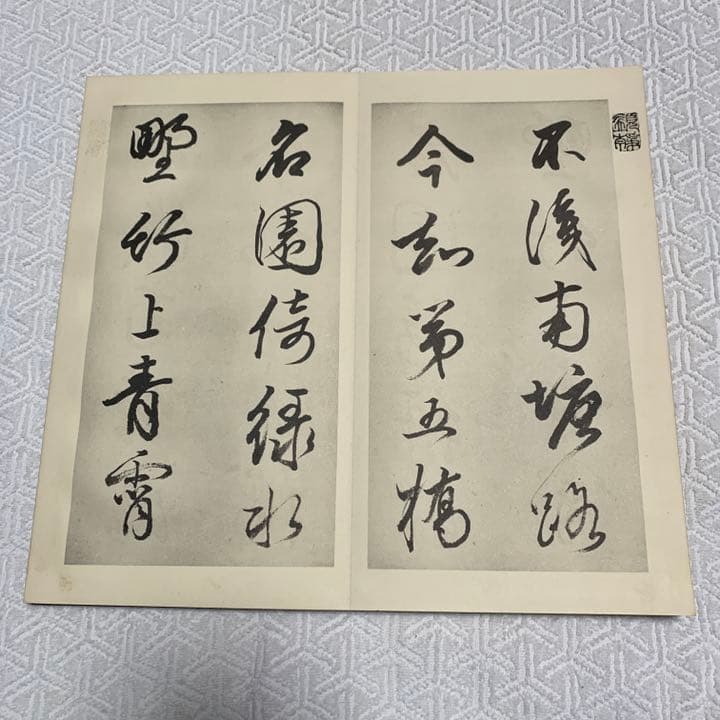 不識南塘路
今知第五橋
名園倚綠水
野竹上青霄